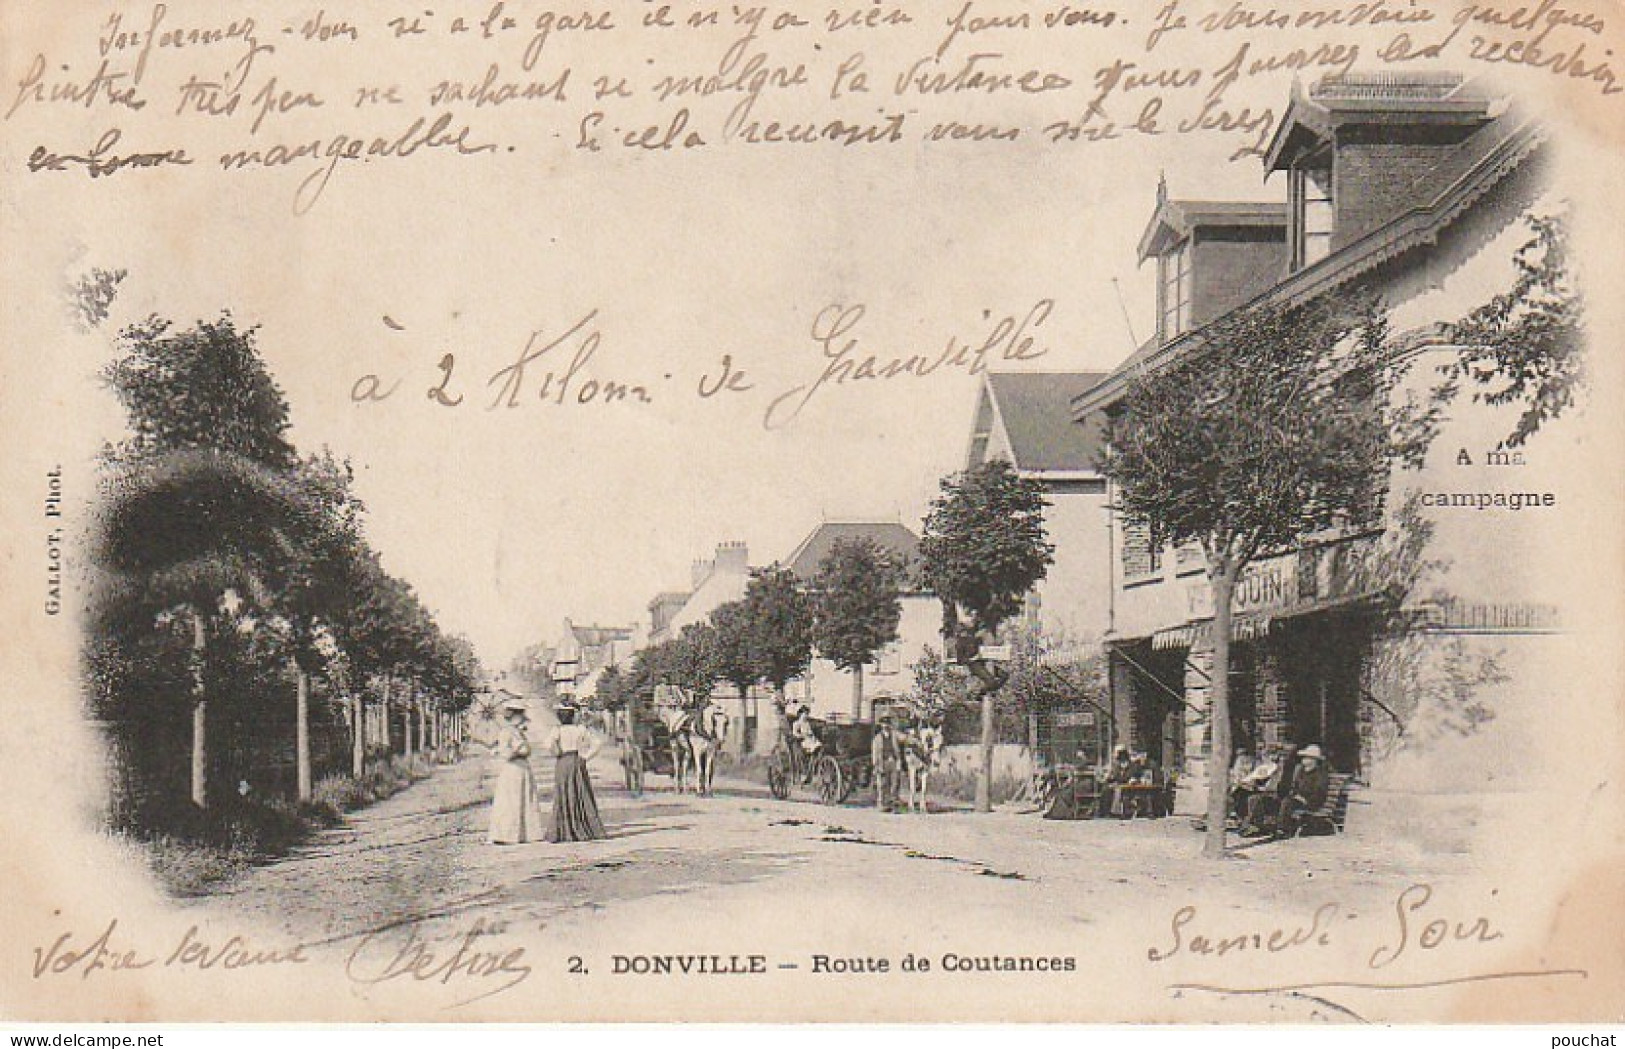 Informez-vous si a la gare il n'y a rien pour vous. Je vous envoie quelques
huitres très peu ne sachant si malgré la distance vous pourrez les recevoir
en bonne mangeables. Si cela reussit vous me le direz
à 2 Kilom. de Granville
A ma
campagne
GALLOT, Phot.
OUIN
votre servante
Samedi Soir
2. DONVILLE — Route de Coutances
delcampe.net
pouchat